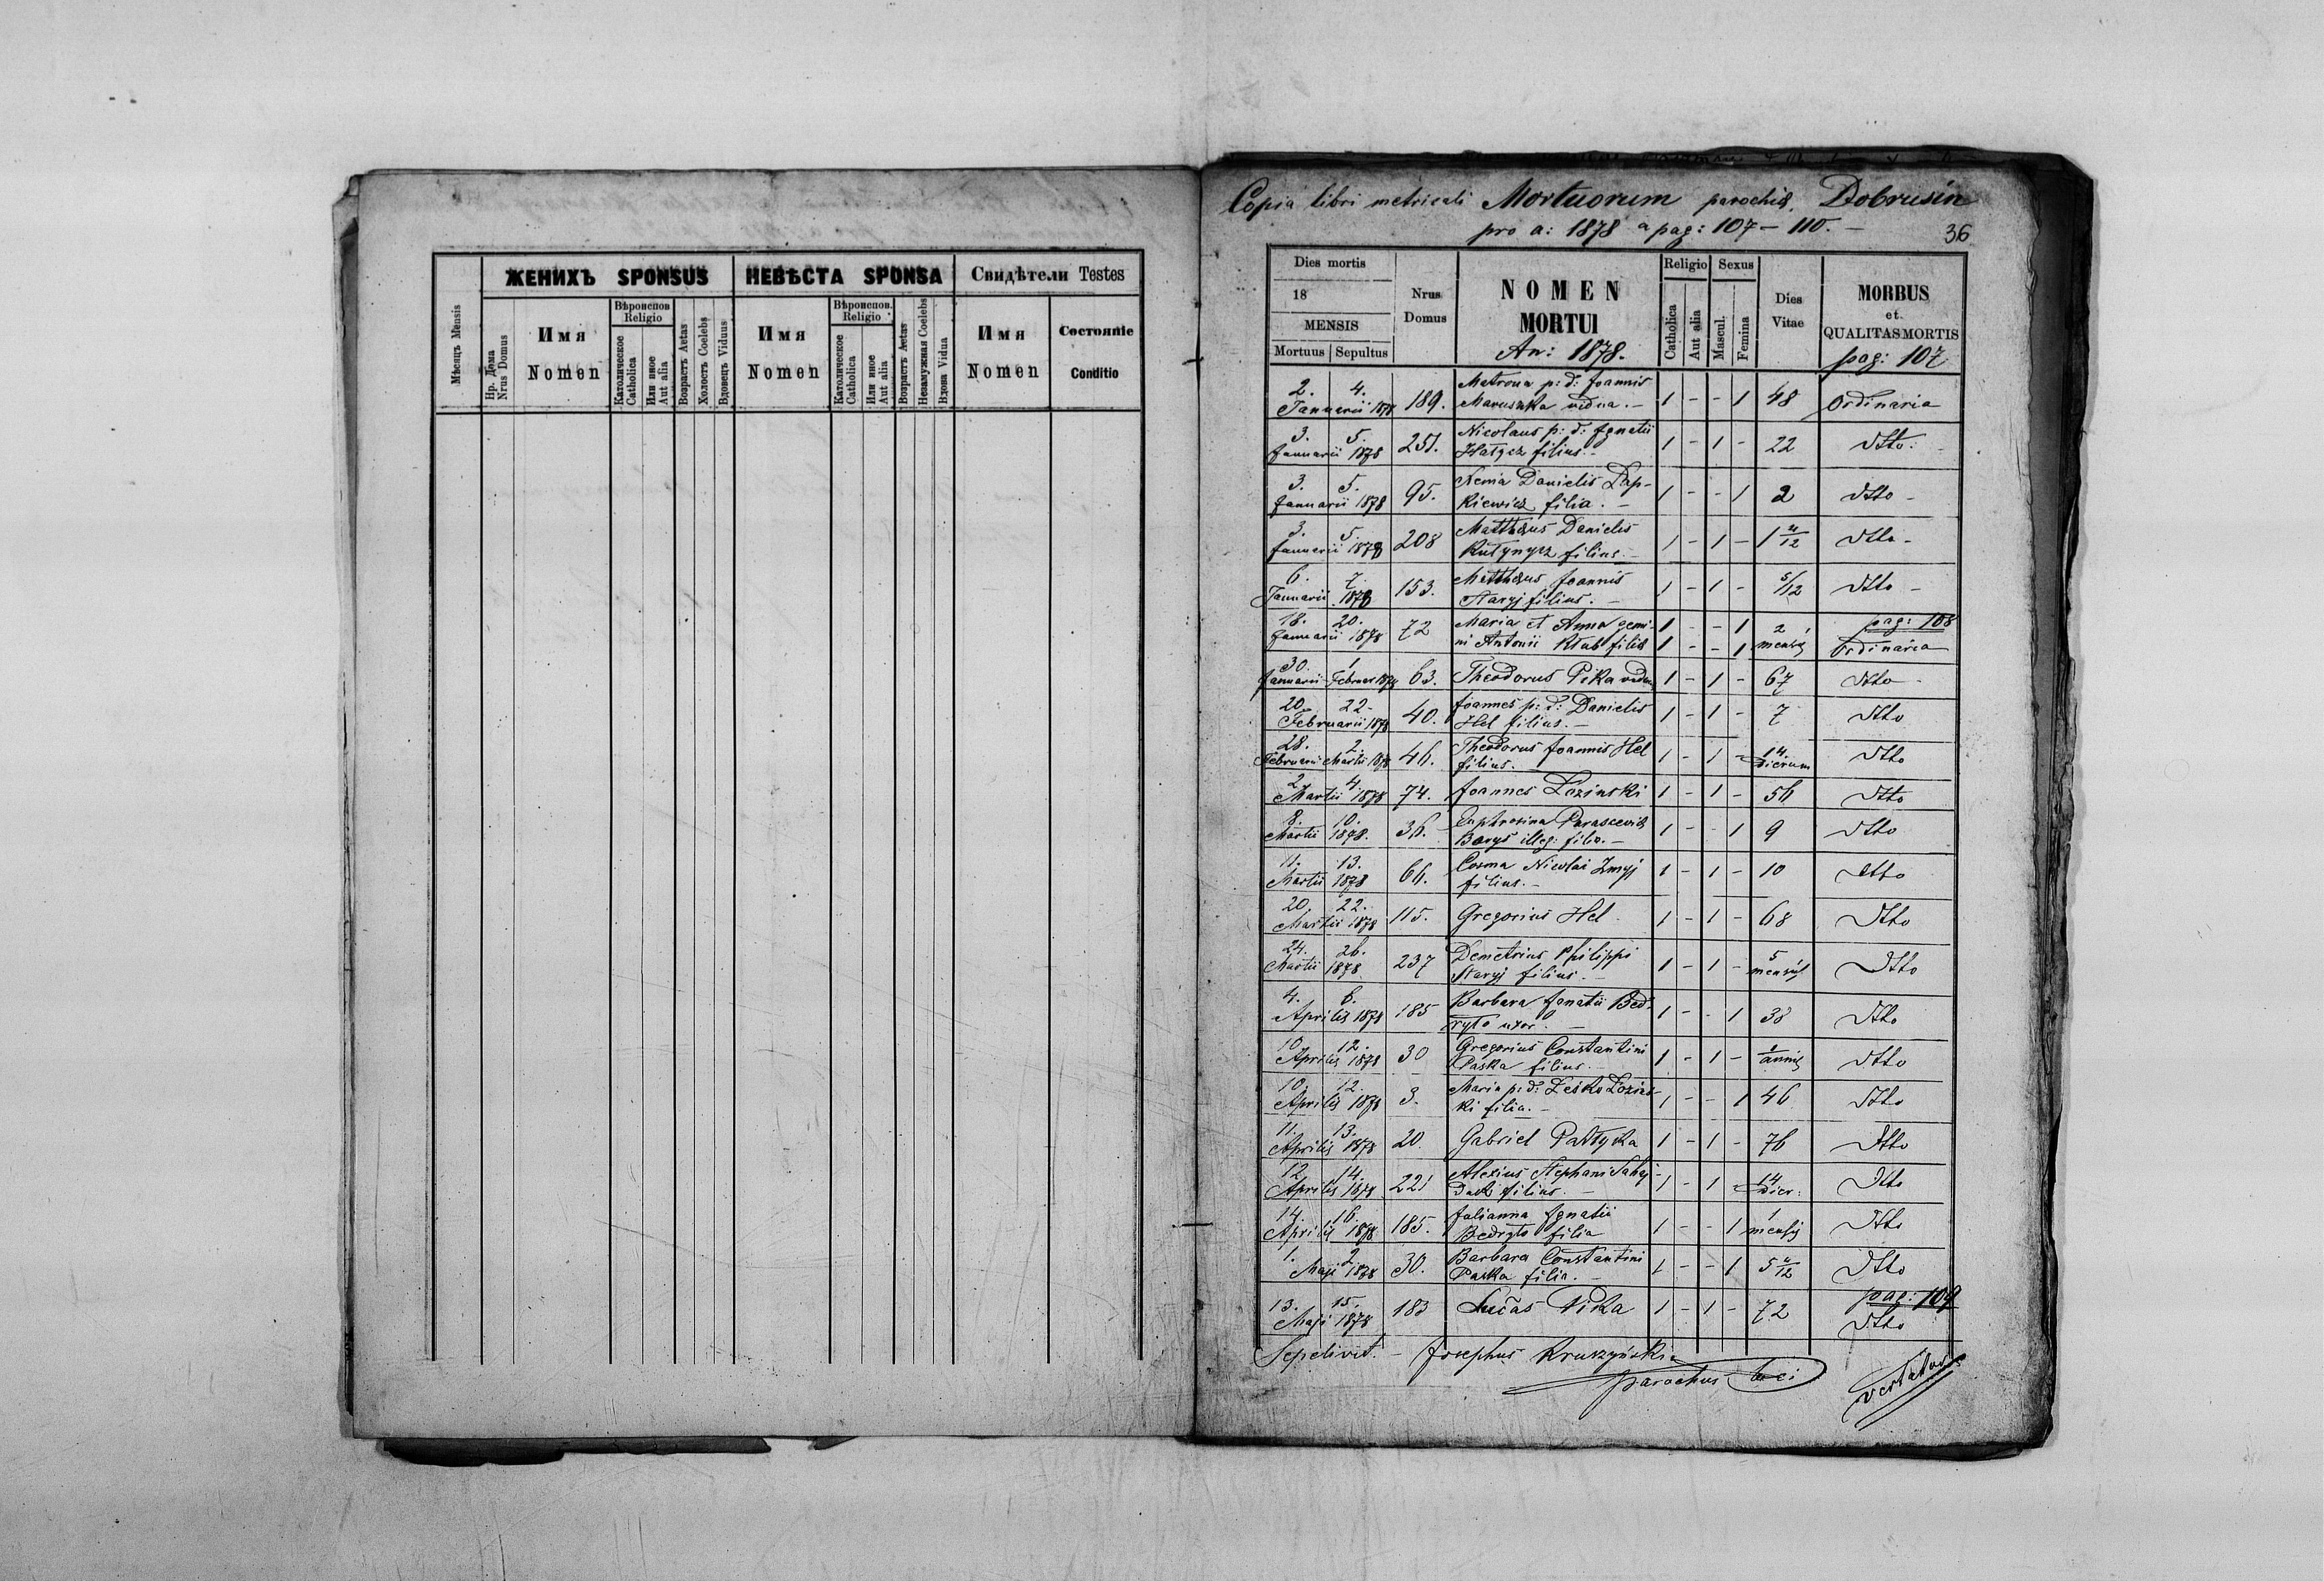 ЖЕНИХЪ SPONSUS НЕВѢСТА SPONSA Свидѣтели Testes
Мѣсяцъ Mensis
Нр. Дома
Nrus Domus
Имя
Nomen
Вѣроиспов
Religio
Католическое
Catholica
Или иное
Aut alia
Возрастъ Aetas
Холостъ Coelebs
Вдовецъ Viduus
Имя
Nomen
Вѣроиспов.
Religio
Католическое
Catholica
Или иное
Aut alia
Возрастъ Aetas
Незамужная Coelebs
Вдова Vidua
Имя
Nomen
Состояніе
Conditio
Copia libri metricali Mortuorum parochiæ Dobrusin
pro a: 1878 a pag: 107 – 110. –
36
Dies mortis
18
MENSIS
Mortuus Sepultus
Nrus
Domus
NOMEN
MORTUI
An: 1878.
Religio
Catholica
Aut alia
Sexus
Mascul.
Femina
Dies
Vitae
MORBUS
et
QUALITAS MORTIS
pag: 107
2. 4. Januarii 1878 189. Matrona p: d: Joannis
Maruszka vidua. – 1 - - 1 48 Ordinaria
3. 5. Januarii 1878 251. Nicolaus p: d: Ignatii
filius. – 1 - 1 - 22 dtto
3. 5. Januarii 1878 95. Xenia Danielis Łap-
kiewicz filia. – 1 - - 1 2 dtto -
3. 5. Januarii 1878 208 Matthæus Danielis
filius. – 1 - 1 - 1 11/12 dtto -
6. 7. Januarii 1878 153. Matthæus Joannis
Staryj filius. – 1 - 1 - 5/12 dtto -
pag: 108
18. 20. Januarii 1878 72 Maria et Anna gemi-
ni Antonii Kłub filiæ 1 - - 1 1 - - 1 2 mensis Ordinaria
30. Januarii 1 Februar 1878 63. Theodorus Pika 1 - 1 - 67 dtto -
20. 22. Februarii 1878 40. Joannes p: d: Danielis
Hel filius. – 1 - 1 - 7 dtto
28. Februarii 2. Martii 1878 46. Theodorus Joannis Hel
filius. 1 - 1 - 14. dierum dtto
2. 4. Martii 1878 74. Joannes Łozinski 1 - 1 - 56 dtto
8. 10. Martii 1878. 36. Euphrosina Parascevia
Barys illeg: filia. – 1 - - 1 9 dtto
11. 13. Martii 1878 66. Cosma Nicolai Zmyj
filius. – 1 - 1 - 10 dtto
20. 22. Martii 1878 115. Gregorius Hel 1 - 1 - 68 dtto
24. 26. Martii 1878 237 Demetrius Philippi
Staryj filius. – 1 - 1 - 5 mensis dtto
4. 6. Aprilis 1878 185 Barbara Ignatii Bed-
ryło uxor. – 1 - - 1 38 dtto
10 12. Aprilis 1878 30 Gregorius Constantini
Paska filius. – 1 - 1 - 1 dtto
10. 12. Aprilis 1878 3. Maria p: d: Leśko Łozins-
ki filia. – 1 - - 1 46 dtto
11. 13. Aprilis 1878 20 Gabriel Pałtyka 1 - 1 - 76 dtto
12 14. Aprilis 1878 221 Alexius Stephani
filius. – 1 - 1 - 14 dier: dtto
14. 16. Aprilis 1878 185. Julianna Ignatii
Bedryło filia 1 - - 1 1 mensis dtto
1. 2. Maji 1878 30. Barbara Constantini
Paska filia. – 1 - - 1 5 11/12 dtto
pag: 109
13. 15. Maji 1878 183 Lucas Pika 1 - 1 - 72 dtto
Sepelivit. – Josephus Kruszyński
parochus loci